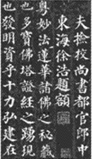 夫檢挍尚書都官郎中
東海徐浩題額
粵妙法蓮華諸佛之秘藏
也多寶佛塔證經之踴現
也發明資乎十力弘建在